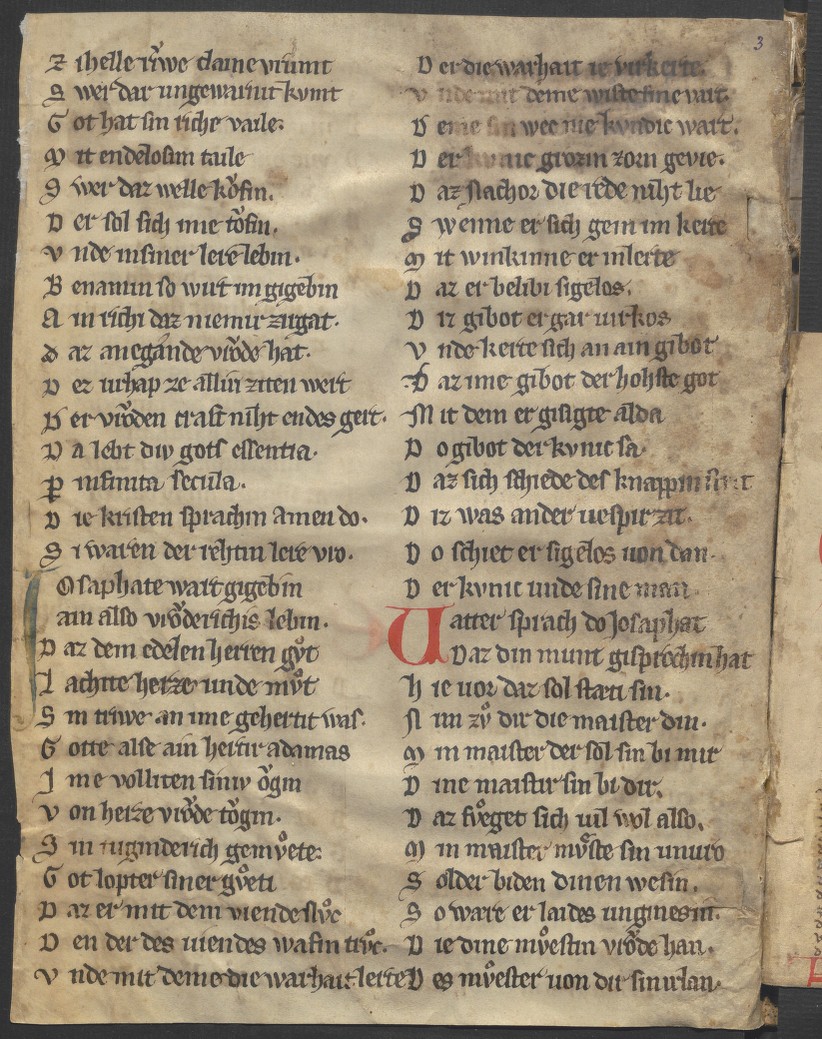 3
Z ihelle rv̂we dame vrumt
S wer dar ungewarnit kvmt
G ot hat sin riche vaile.
M it endelosim taile
S wer daz welle kofin.
D er sol sich inie tofin.
V nde insiner lere lebin.
B enamin so wirt im gigebin
A in richi daz niemir zirgat.
D az anegande vrode hat.
D ez urhap ze allin ziten wert
D er vroden craft niht endes gert.
D a lebt div gots essentia.
P infinita secula.
D ie kristen sprachin Amen do.
S i waren der rehtin lere vro.
Iosaphate wart gigebin
ain also vroderichis lebin.
D az dem edelen herren gůt
L achite herze unde můt
S in triwe an ime gehertit was.
G otte alse ain hertir adamas
I me volliten siniv ogin
V on herze vrode togin.
S in iuginderich gemůete.
G ot lopter siner gůeti
D az er mit dem viende slůc
D en der des uiendes wafin trůc.
V nde mit deme die warhait lerte
D er die warhait ie virkerte.
V nde mit deme wiste sine vart.
D eme sin wec nie kvndic wart.
D er kvnic grozin zorn gevie.
D az Nachor die rede niht lie
S wenne er sich gein im kerte
M it winkinne er in lerte
D az er belibi sigelos.
D iz gibot er gar uirkos
V nde kerte sich an ain gibot
D az ime gibot der hohste got
M it dem er gisigte alda
D o gibot der kvnic sa.
D az sich schiede des knappin strit
D iz was ander uespir zit.
D o schiet er sigelos uon dan.
D er kvnic unde sine man
Vatter sprach do Josaphat
Daz din munt gisprochin hat
H ie uor daz sol stati sin.
N im zů dir die maister din.
M in maister der sol sin bi mir
D ine maistir sin bi dir.
D az fůeget sich uil wol also.
M in maister můste sin unuro
S older biden dinen wesin.
S o ware er laides unginesin.
D ie dine můestin vrode han.
D es můester uon dir sin irlan.